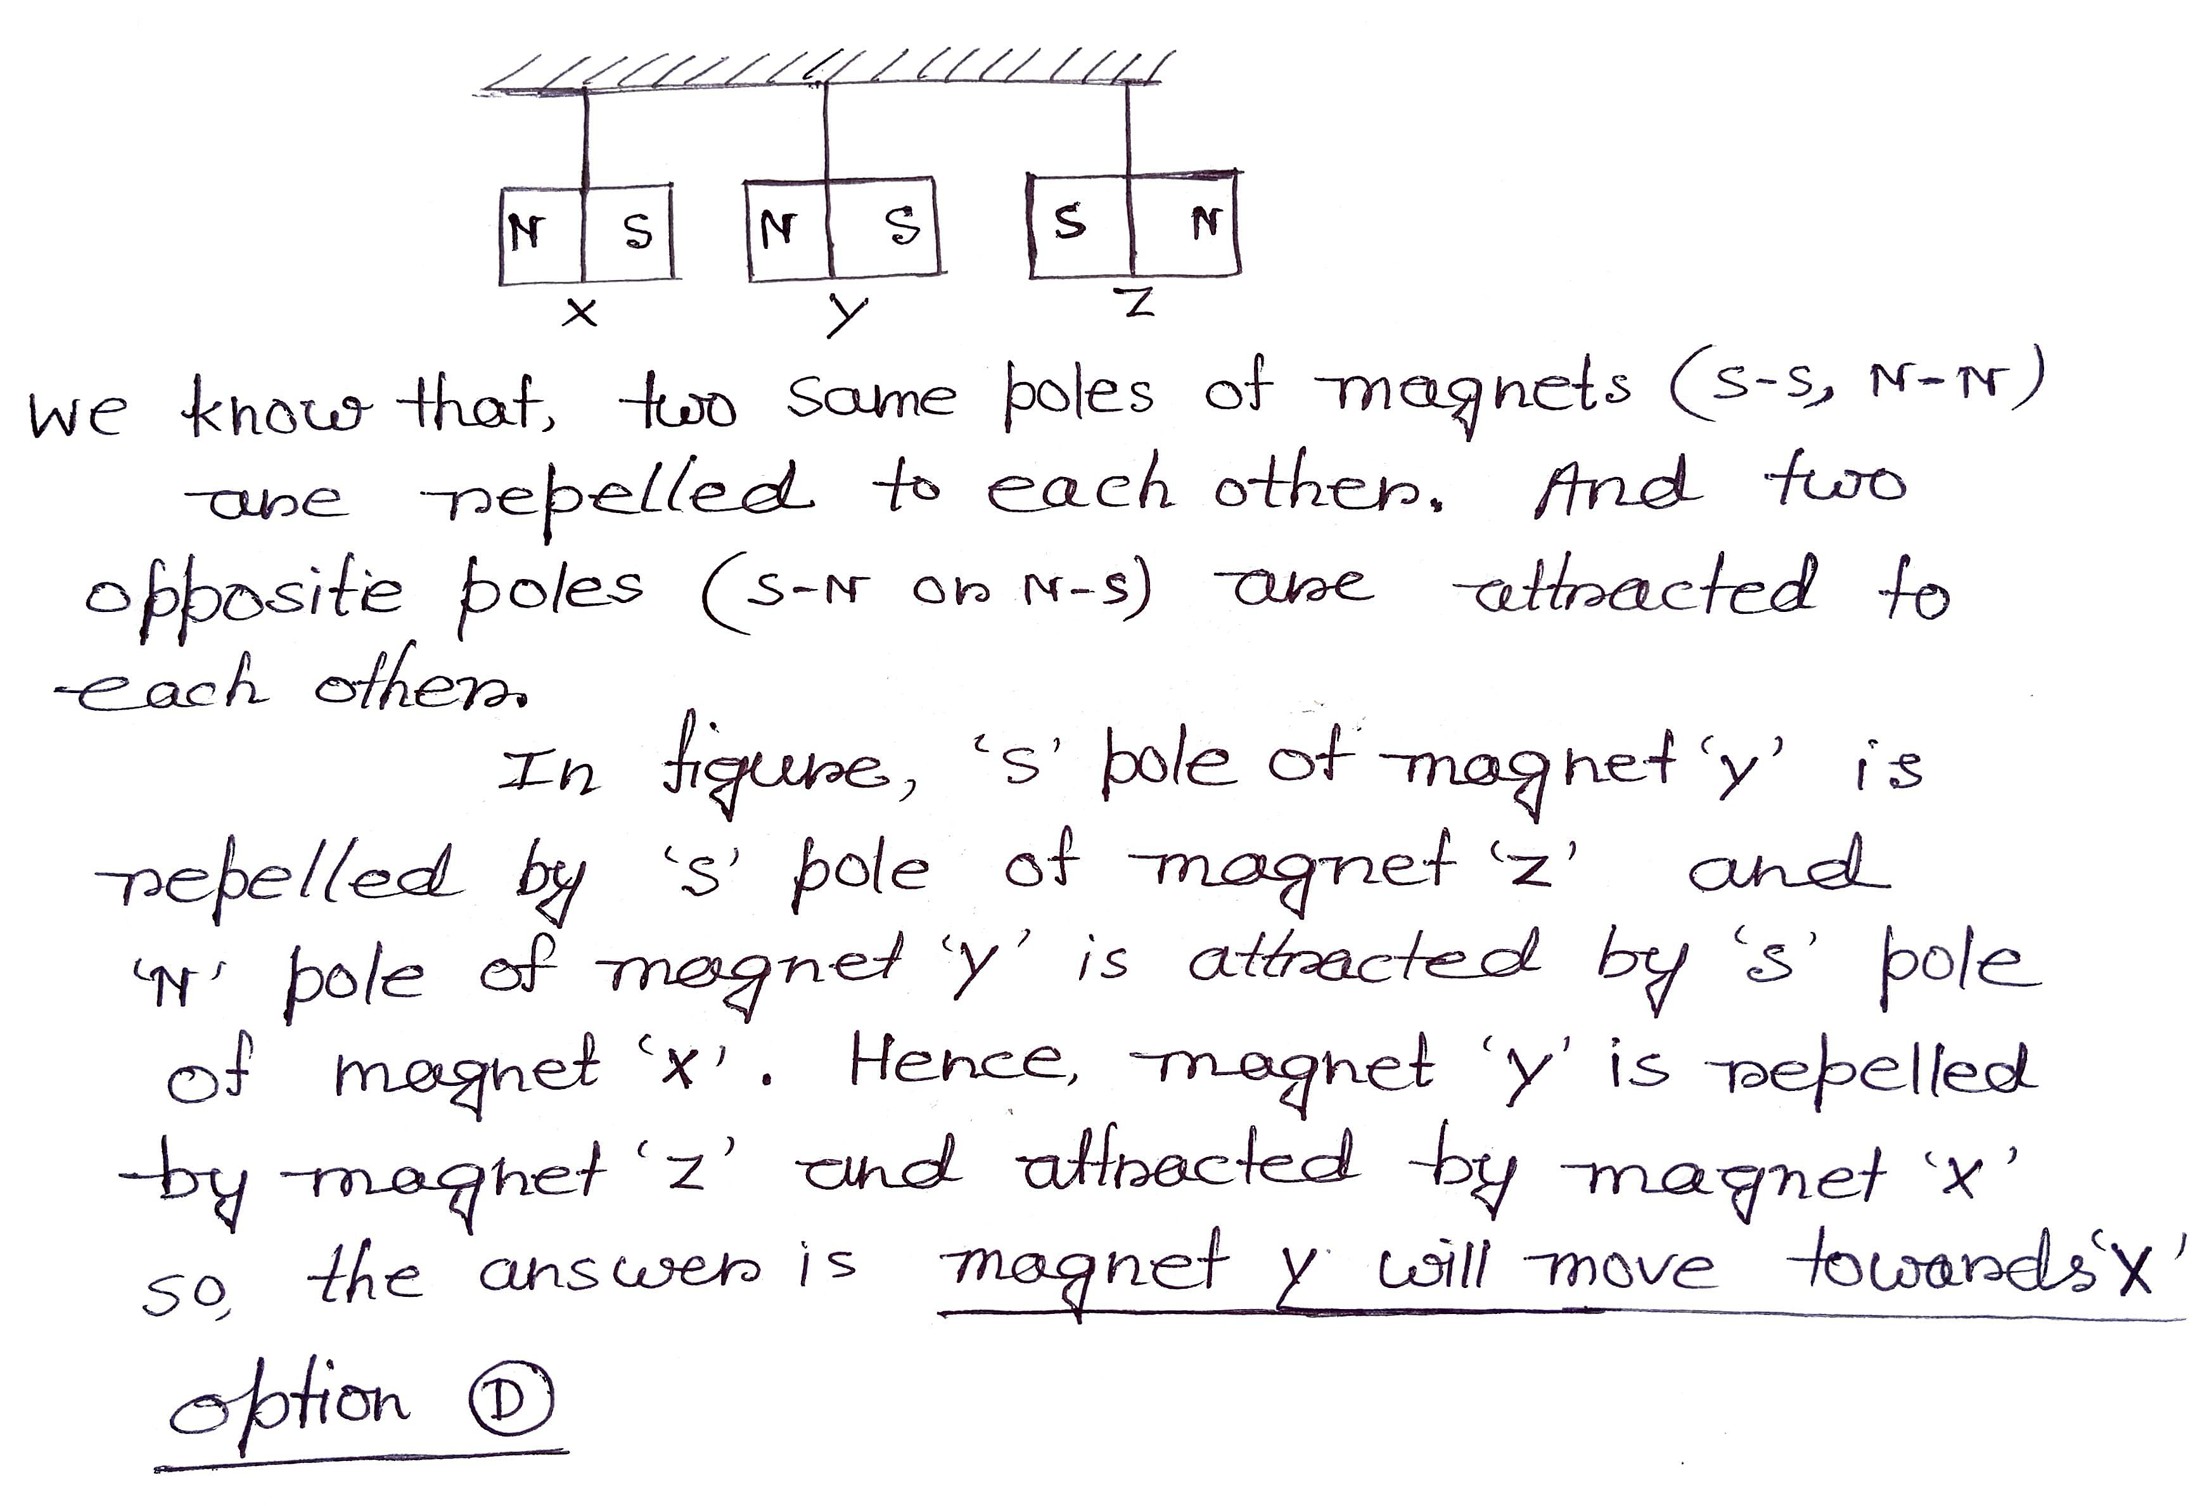 N S N S S N
X Y Z
we know that, two same poles of magnets (S-S, N-N)
are repelled to each other. And two
opposite poles (S-N or N-S) are attracted to
each other.
In figure, 'S' pole of magnet 'y' is
repelled by 'S' pole of magnet 'z' and
'N' pole of magnet 'y' is attracted by 'S' pole
of magnet 'x'. Hence, magnet 'y' is repelled
by magnet 'z' and attracted by magnet 'x'
so, the answer is magnet y will move towards 'X'
option D